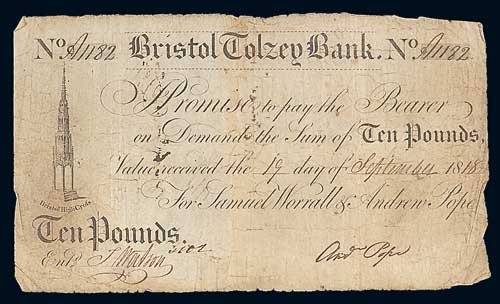 No. A1182 Bristol Tolzey Bank. No. A1182
I Promise to pay the Bearer
on Demand the Sum of Ten Pounds,
Value received the 19 day of September 1818
For Samuel Worrall & Andrew Pope
Bristol High Cross
Ten Pounds.
Entd. J Watson
Andw Pope